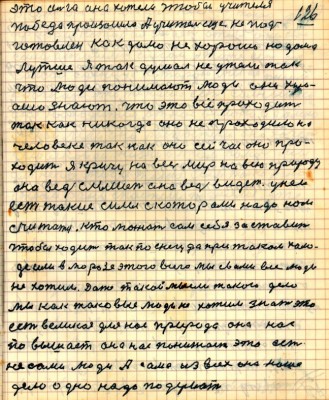 126
это сила она хотела чтобы учителя
победа произошло А учител еще не под
готовлен как дамо не хорошо но дома
Лутше Я так думал не ужали так
что люди понимают люди они хоро-
шело знают. что это всё приходит
так как никогда оно не проходило на
человеке так как оно сейчас оно про-
ходит Я кричу на весь мир на всю природу
она ведь слышит она ведь видит. у ней
ест такие силы с которами надо ном
считатя. кто может сам себя заставит
чтобы ходит так по снегу да при таком холо-
де или в морозе этого всего мы с вами все люди
не хотим. Даже такой мысли такого дело
мы как таковые люди не хотим знат это
ест великое для нас природа она нас
по выщает она нас понимает это ест
не сами люди А само из всех она наше
дело одно надо подумат